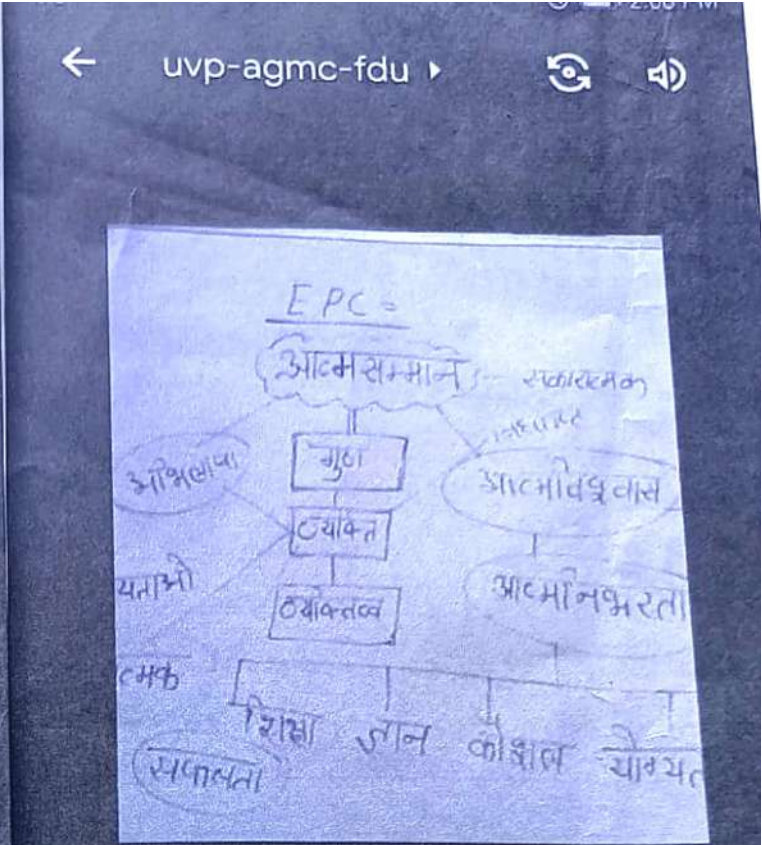 uvp-agmc-fdu
EPC =
आत्मसम्मान :- सकारात्मक
अभिलाषा
गुण
आत्मविश्वास
व्यक्ति
यताओ
आत्मनिर्भरता
व्यक्तित्व
त्मक
शिक्षा ज्ञान कौशल योग्यत
सफलता